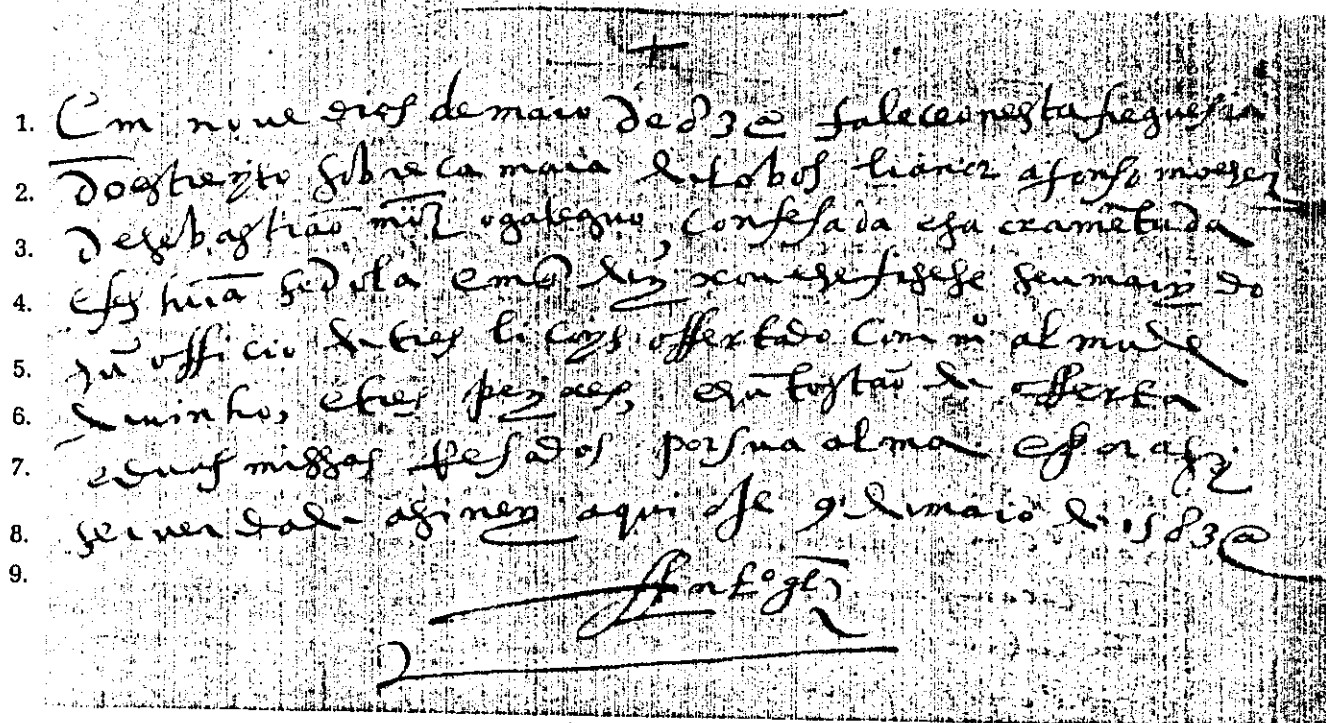 1. Em nove dias de maio de 83 @ faleceo nesta freguesia
2. do estreyto sobre camara de lobos lianor afonso molher
3. de sebastião miz ogalegno, confesada e sacramētada
4. e fez hūa sedola em q dis xou que se fizese seu marydo
5. hū officio de tres licoys offertado com m.º almude
6. de vinho, e tres pezaes, e hū tostão de offerta
7. e duas missas resados por sua alma e por asi
8. ser verdade asiney aqui oje 9 de maio de 1583 @
9. Ant.º glz